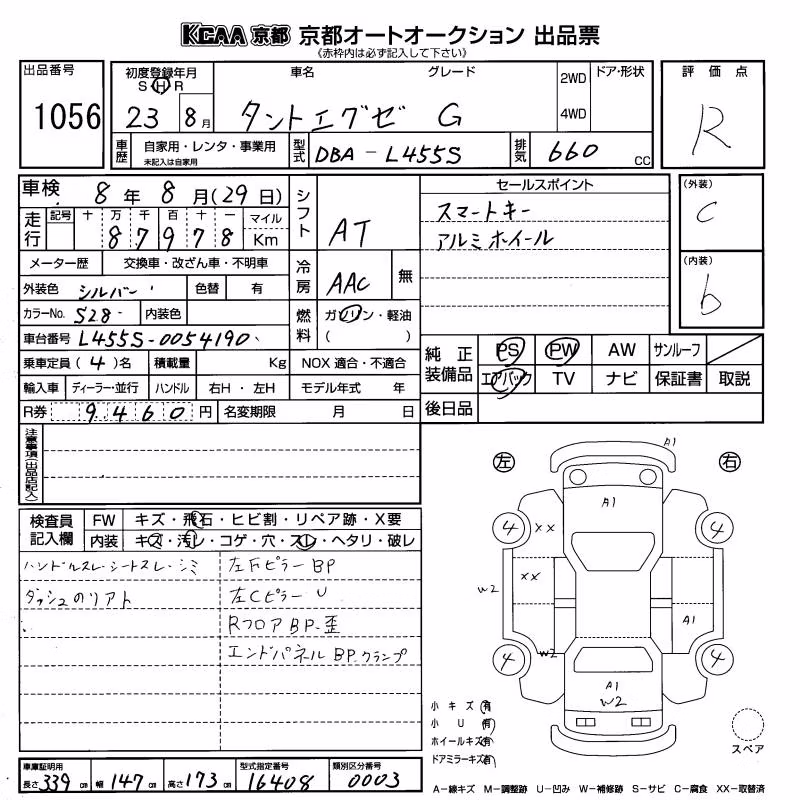 KCAA 京都 京都オートオークション 出品票
(赤枠内は必ず記入して下さい)
出品番号
1056
初度登録年月
S H R
23 8月
車名 グレード
タントエグゼ G
2WD
4WD
ドア・形状
車歴 自家用・レンタ・事業用
未記入は自家用
型式 DBA-L455S
排気 660 CC
評価点
R
車検 8年8月(29日)
走行 記号 十 万 千 百 十 一 マイル
8 7 9 7 8 Km
シフト AT
メーター歴 交換車・改ざん車・不明車
冷房 AAC 無
外装色 シルバー 色替 有
カラーNo. S28 内装色
燃料 ガソリン・軽油
( )
車台番号 L455S-0054190
乗車定員 (4)名 積載量 Kg NOX 適合・不適合
輸入車 ディーラー・並行 ハンドル 右H・左H モデル年式 年
R券 9,460円 名変期限 月 日
セールスポイント
スマートキー
アルミホイール
(外装)
C
(内装)
b
純正装備品 PS PW AW サンルーフ
エアバック TV ナビ 保証書 取説
後日品
注意事項(出品店記入)
検査員記入欄 FW キズ・飛石・ヒビ割・リペア跡・X要
内装 キズ・汚レ・コゲ・穴・スレ・ヘタリ・破レ
ハンドルスレ・シートスレ・シミ 左Fピラー BP
ダッシュのリアト 左Cピラー U
Rフロア BP・歪
エンドパネル BP.クランプ
左 右
A1
A1
4 XX 4
XX
W2
A1
4 W2 4
A1
W2
小キズ(有)
小U(有)
ホイールキズ(有)
ドアミラーキズ(有)
スペア
A-線キズ M-調整跡 U-凹み W-補修跡 S-サビ C-腐食 XX-取替済
車庫証明用
長さ339cm 幅147cm 高さ173cm
型式指定番号 16408
類別区分番号 0003